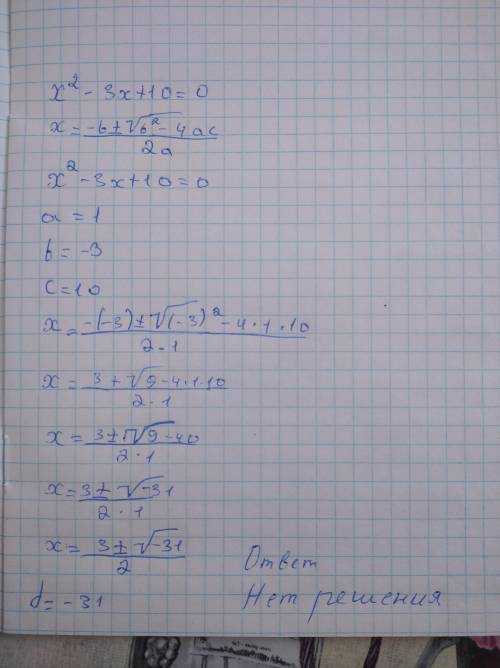 x² - 3x+10=0
x = (-b±√(b² - 4ac))/(2a)
x² - 3x+10=0
a = 1
b = -3
c=10
x = (-(-3)±√((-3)² - 4·1·10))/(2·1)
x = (3±√(9-4·1·10))/(2·1)
x = (3±√(9-40))/(2·1)
x = (3±√(-31))/(2·1)
x = (3±√(-31))/2
d= -31
Ответ
Нет решения